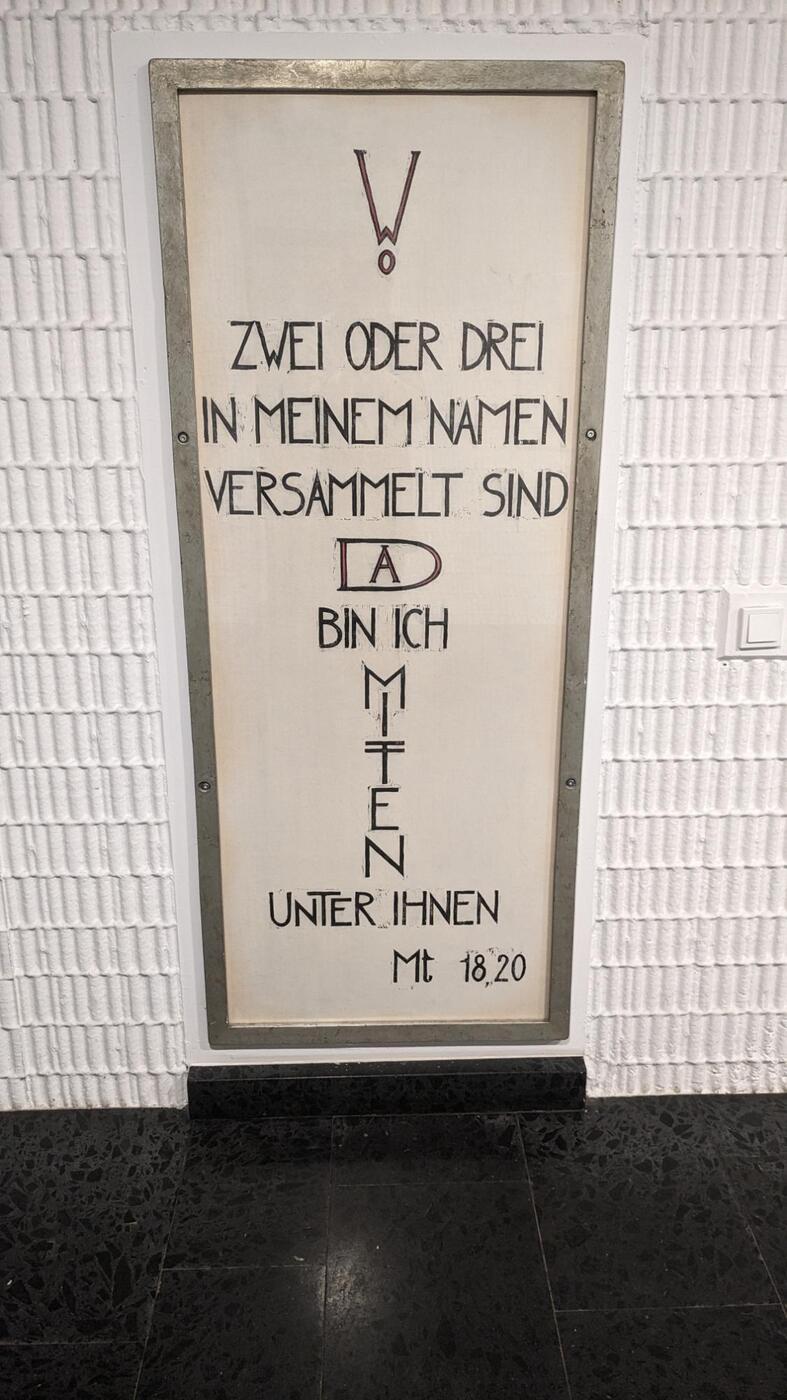 WO
ZWEI ODER DREI
IN MEINEM NAMEN
VERSAMMELT SIND
DA
BIN ICH
MITTEN
UNTER IHNEN
Mt 18,20